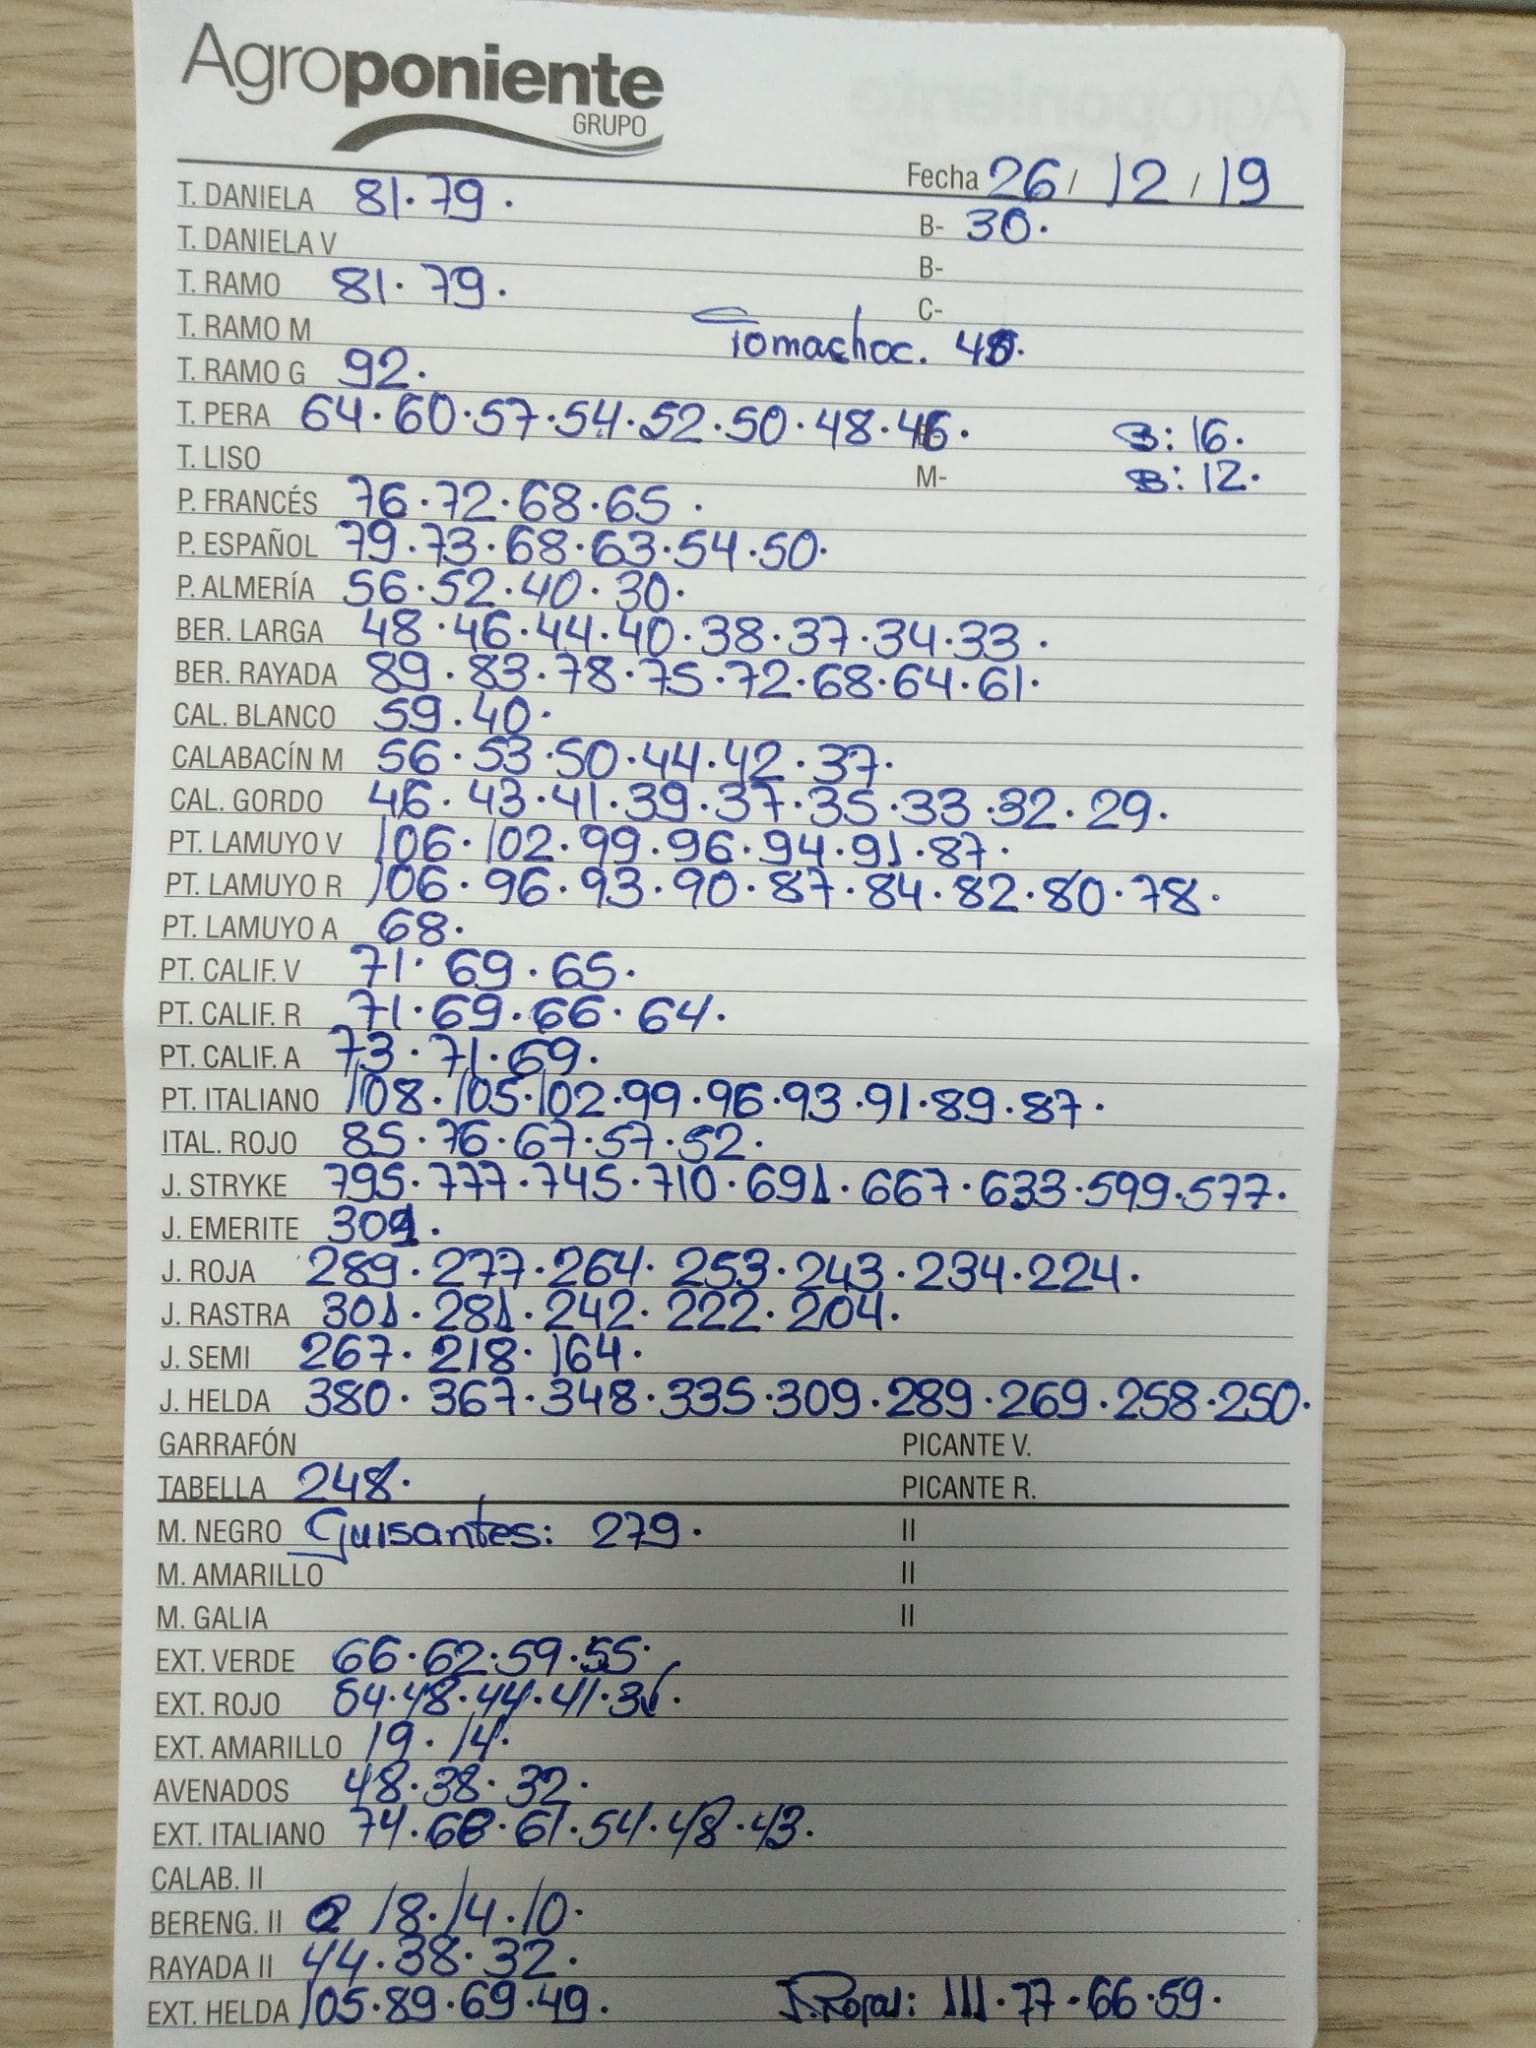 Agroponiente
GRUPO
Fecha 26 / 12 / 19
T. DANIELA 81. 79. B- 30.
T. DANIELA V B-
T. RAMO 81. 79. C-
T. RAMO M Tomachoc.
T. RAMO G 92.
T. PERA 64. 60. 57. 54. 52. 50. 48. 46. B: 16.
T. LISO M- B: 12.
P. FRANCÉS 76. 72. 68. 65.
P. ESPAÑOL 79. 73. 68. 63. 54. 50.
P. ALMERÍA 56. 52. 40. 30.
BER. LARGA 48. 46. 44. 40. 38. 37. 34. 33.
BER. RAYADA 89. 83. 78. 75. 72. 68. 64. 61.
CAL. BLANCO 59. 40.
CALABACÍN M 56. 53. 50. 44. 42. 37.
CAL. GORDO 46. 43. 41. 39. 37. 35. 33. 32. 29.
PT. LAMUYO V 106. 102. 99. 96. 94. 91. 87.
PT. LAMUYO R 106. 96. 93. 90. 87. 84. 82. 80. 78.
PT. LAMUYO A 68.
PT. CALIF. V 71. 69. 65.
PT. CALIF. R 71. 69. 66. 64.
PT. CALIF. A 73. 71. 69.
PT. ITALIANO 108. 105. 102. 99. 96. 93. 91. 89. 87.
ITAL. ROJO 85. 76. 67. 57. 52.
J. STRYKE 795. 777. 745. 710. 691. 667. 633. 599. 577.
J. EMERITE 301.
J. ROJA 289. 277. 264. 253. 243. 234. 224.
J. RASTRA 301. 281. 242. 222. 204.
J. SEMI 267. 218. 164.
J. HELDA 380. 367. 348. 335. 309. 289. 269. 258. 250.
GARRAFÓN PICANTE V.
TABELLA 248. PICANTE R.
M. NEGRO Guisantes: 279. II
M. AMARILLO II
M. GALIA II
EXT. VERDE 66. 62. 59. 55.
EXT. ROJO 54. 48. 44. 41. 36.
EXT. AMARILLO 19. 14.
AVENADOS 48. 38. 32.
EXT. ITALIANO 74. 68. 61. 54. 48. 43.
CALAB. II
BERENG. II 18. 14. 10.
RAYADA II 44. 38. 32.
EXT. HELDA 105. 89. 69. 49. 111. 77. 66. 59.